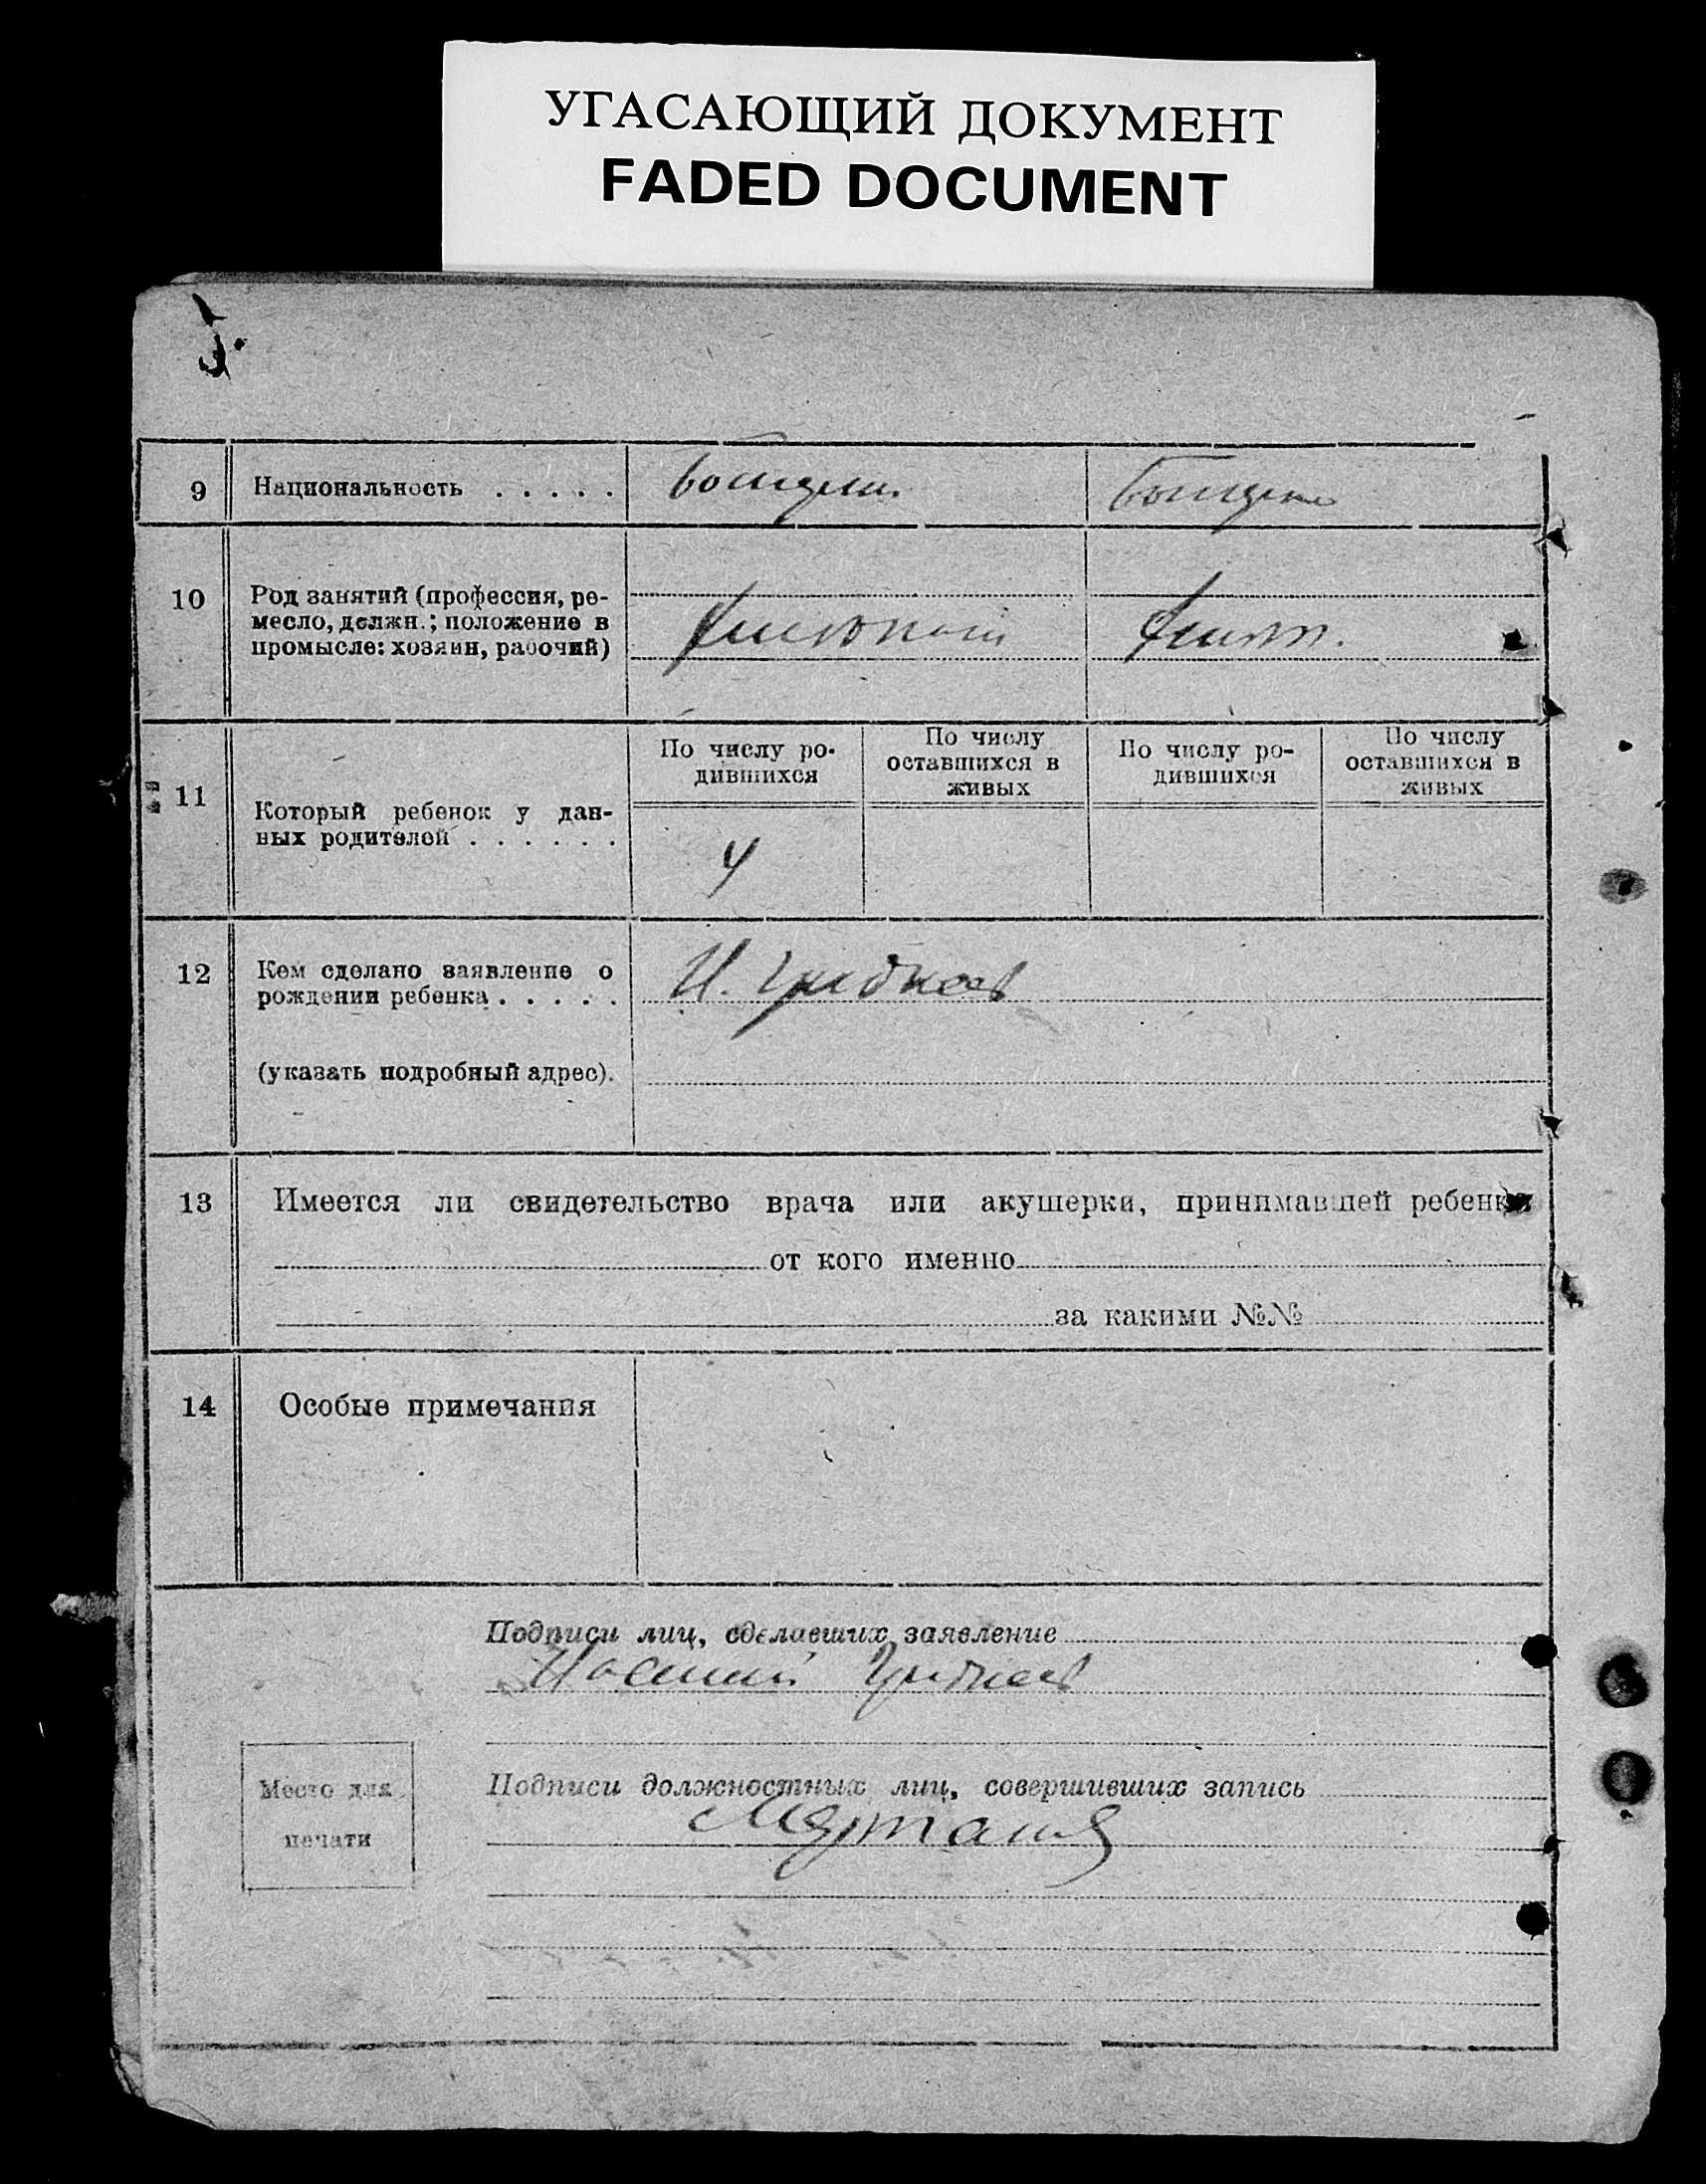 УГАСАЮЩИЙ ДОКУМЕНТ
FADED DOCUMENT
9 Национальность . . . . .
10 Род занятий (профессия, ре-
месло, должн.; положение в
промысле: хозяин, рабочий)
По числу ро-
дившихся
По числу
оставшихся в
живых
По числу ро-
дившихся
По числу
оставшихся в
живых
11 Который ребенок у дан-
ных родителей . . . . . .
4
12 Кем сделано заявление о
рождении ребенка . . . . .
И. Гриднев
(указать подробный адрес).
13 Имеется ли свидетельство врача или акушерки, принимавшей ребенка
от кого именно
за какими №№
14 Особые примечания
Подписи лиц, сделавших заявление
Гриднев
Место для
печати
Подписи должностных лиц, совершивших запись